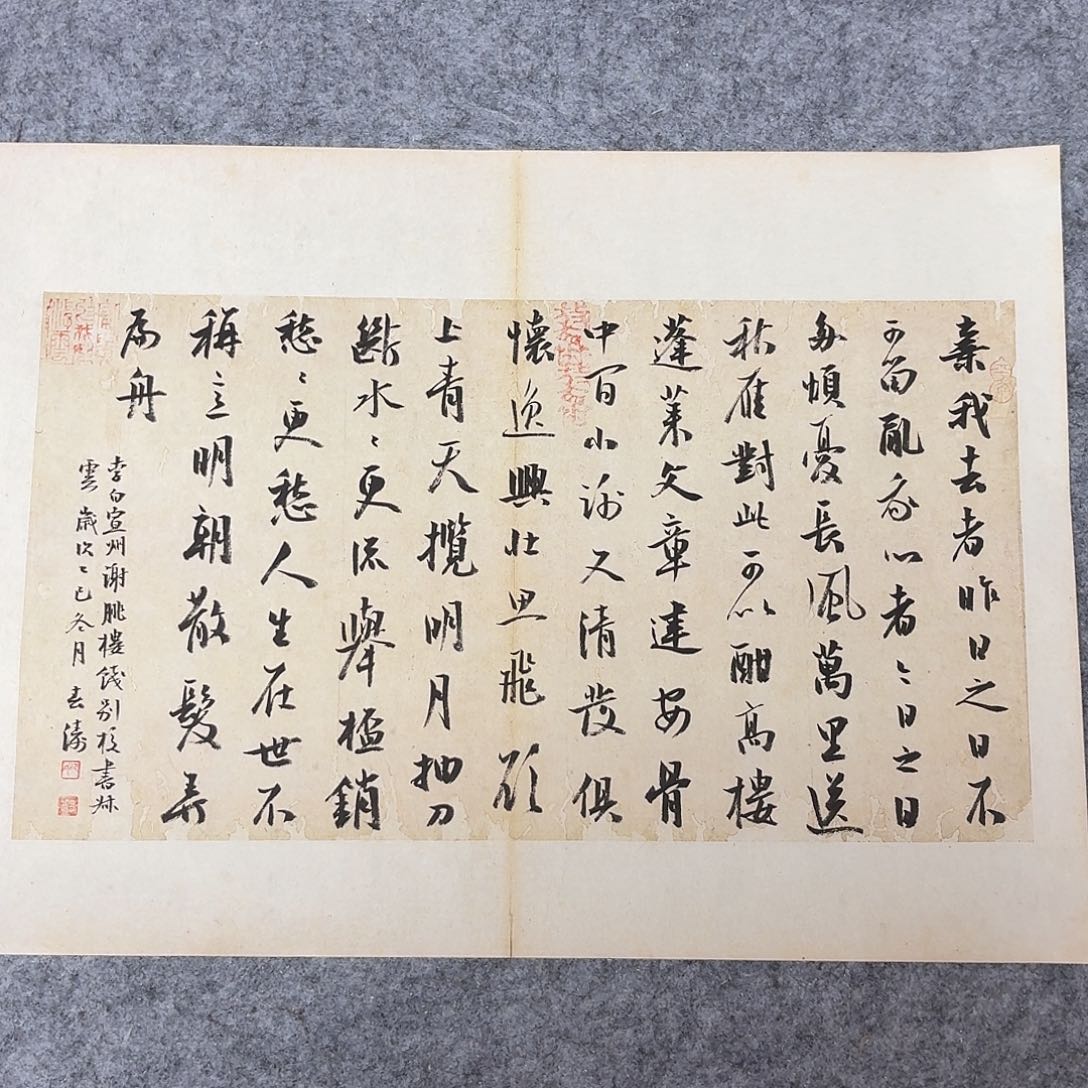 棄我去者昨日之日不
可留亂我心者今日之日
多煩憂長風萬里送
秋雁對此可以酣高樓
蓬萊文章建安骨
中間小謝又清發俱
懷逸興壯思飛欲
上青天攬明月抽刀
斷水〻更流舉杯銷
愁〻更愁人生在世不
稱意明朝散髮弄
扁舟
李白宣州謝朓樓餞別校書叔
雲 歲次乙巳冬月